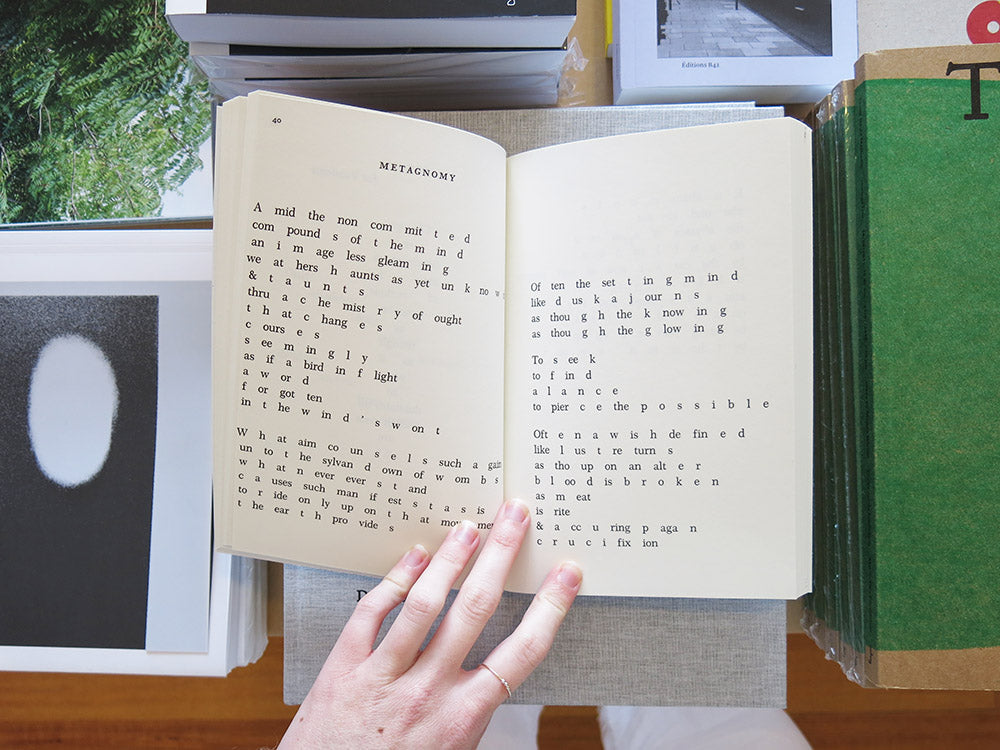 Éditions B42
T
40
METAGNOMY
A mid the non com mit t e d
com pound s of t h e m i n d
an i m age less gleam in g
we at hers h aunts as yet un k no w
& t a u n t s
thru a c he mist r y of ought
t h at c hang e s
c ours e s
s e e m i n g l y
as if a bird in f light
a w o r d
f or got ten
in t h e w i n d ' s w o n t
W h at aim co un s e l s such a gain
un to t h e sylvan d own of w o m b s
w h at n ever ever s t and
c a uses such man if est s t a s i s
to r ide on ly up on t h at mov
t he ear t h pro vide s
Of ten the set t i n g m i n d
like d u s k a j our n s
as thou g h t h e k now in g
as thou g h t h e g low in g
To s ee k
to f i n d
a l a n c e
to pier c e the p o s s i b l e
Oft e n a w i s h de fin e d
like l u s t re turn s
as tho up on an alt e r
b l oo d i s b r o k e n
as m eat
is rite
& a cc u ring p aga n
c r u c i fix ion